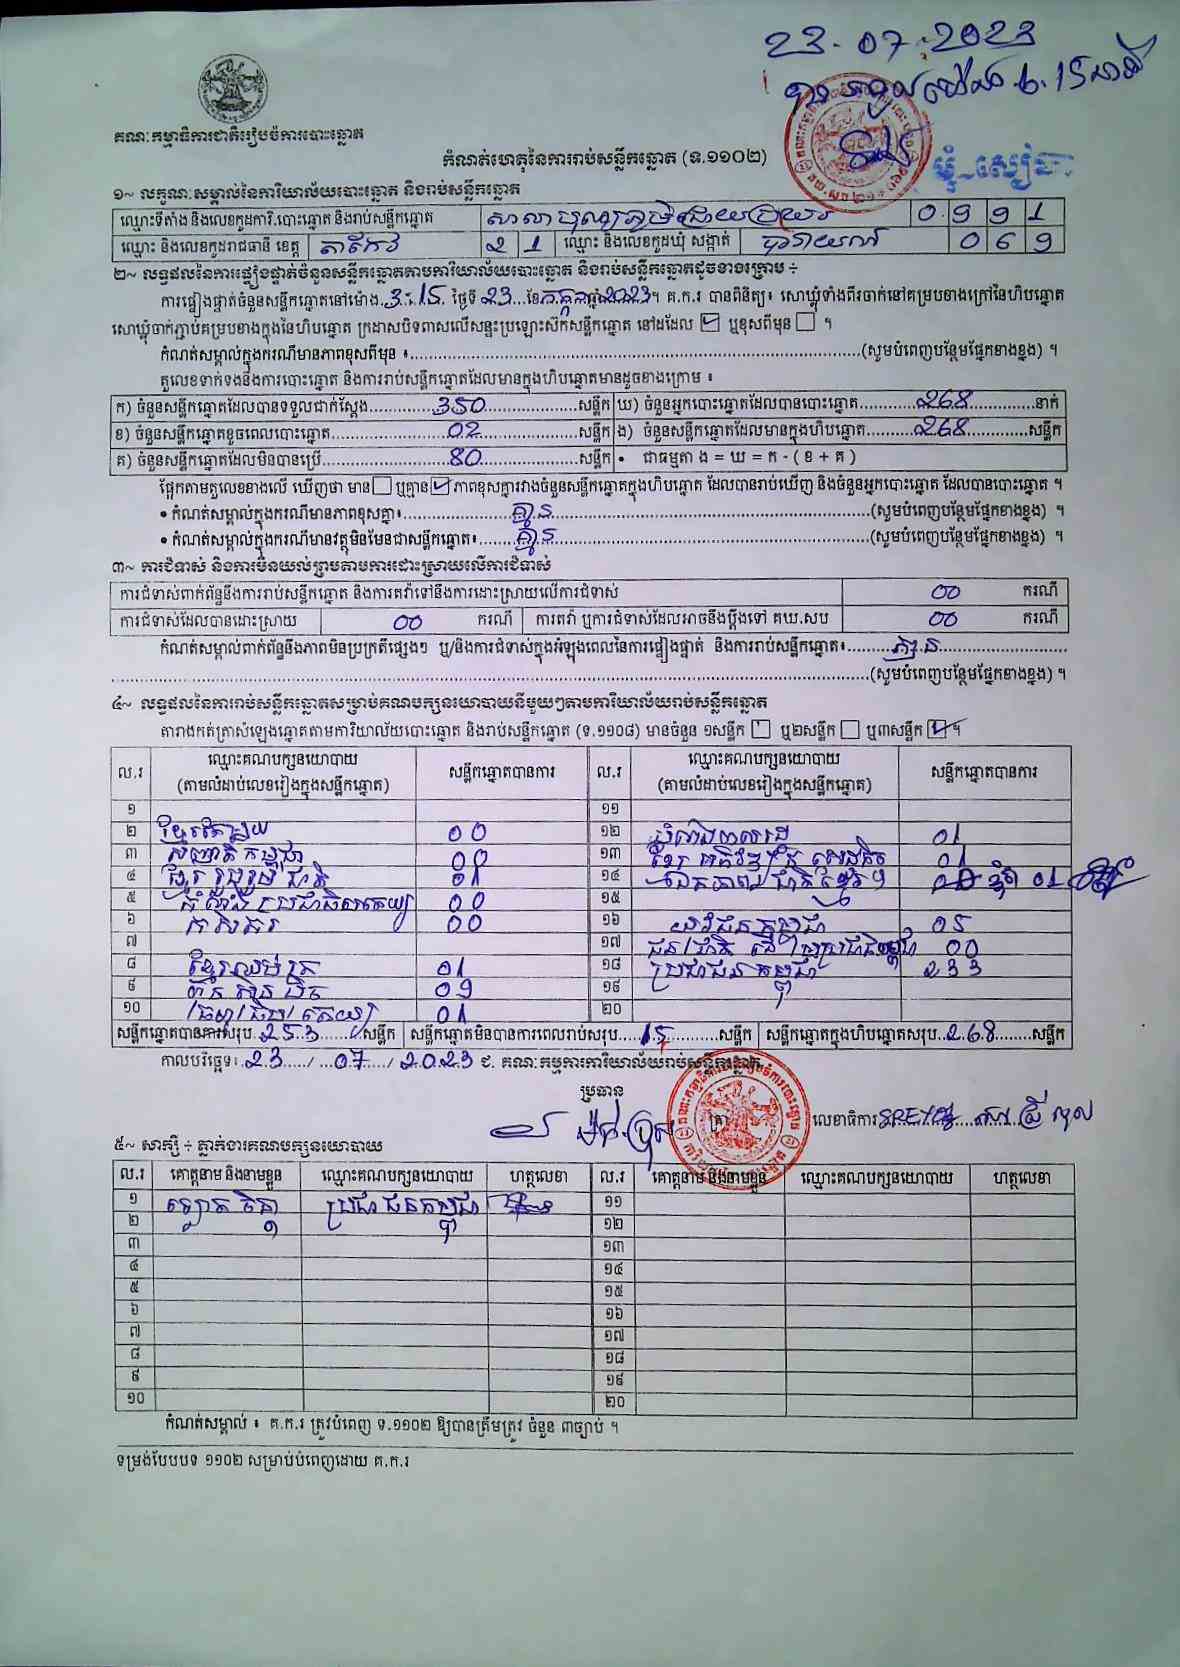 23.07.2023
គណៈកម្មាធិការជាតិរៀបចំការបោះឆ្នោត
កំណត់ហេតុនៃការរាប់សន្លឹកឆ្នោត (ទ.១១០២)
១~ លក្ខណៈសម្គាល់នៃការិយាល័យបោះឆ្នោត និងរាប់សន្លឹកឆ្នោត
ឈ្មោះទីតាំង និងលេខកូដការិ.បោះឆ្នោត និងរាប់សន្លឹកឆ្នោត 0 9 9 1
ឈ្មោះ និងលេខកូដរាជធានី ខេត្ត តាកែវ 2 1 ឈ្មោះ និងលេខកូដឃុំ សង្កាត់ 0 6 9
២~ លទ្ធផលនៃការផ្ទៀងផ្ទាត់ចំនួនសន្លឹកឆ្នោតតាមការិយាល័យបោះឆ្នោត និងរាប់សន្លឹកឆ្នោតដូចខាងក្រោម ÷
ការផ្ទៀងផ្ទាត់ចំនួនសន្លឹកឆ្នោតនៅម៉ោង 3:15 ថ្ងៃទី 23 ខែ កក្កដា ឆ្នាំ 2023។ គ.ក.រ បានពិនិត្យ៖ សោឃ្លុំទាំងពីរចាក់នៅគម្របខាងក្រៅនៃហិបឆ្នោត
សោឃ្លុំចាក់ភ្ជាប់គម្របខាងក្នុងនៃហិបឆ្នោត ក្រដាសបិទពាសលើសន្ទះប្រឡោះស៊កសន្លឹកឆ្នោត នៅដដែល ☑ ឬខុសពីមុន ☐ ។
កំណត់សម្គាល់ក្នុងករណីមានភាពខុសពីមុន ៖ (សូមបំពេញបន្ថែមផ្នែកខាងខ្នង) ។
តួលេខទាក់ទងនឹងការបោះឆ្នោត និងការរាប់សន្លឹកឆ្នោតដែលមានក្នុងហិបឆ្នោតមានដូចខាងក្រោម ៖
ក) ចំនួនសន្លឹកឆ្នោតដែលបានទទួលជាក់ស្តែង 350 សន្លឹក ឃ) ចំនួនអ្នកបោះឆ្នោតដែលបានបោះឆ្នោត 268 នាក់
ខ) ចំនួនសន្លឹកឆ្នោតខូចពេលបោះឆ្នោត 02 សន្លឹក ង) ចំនួនសន្លឹកឆ្នោតដែលមានក្នុងហិបឆ្នោត 268 សន្លឹក
គ) ចំនួនសន្លឹកឆ្នោតដែលមិនបានប្រើ 80 សន្លឹក • ជាធម្មតា ង = ឃ = ក - ( ខ + គ )
ផ្អែកតាមតួលេខខាងលើ ឃើញថា មាន ☐ ឬគ្មាន ☑ ភាពខុសគ្នារវាងចំនួនសន្លឹកឆ្នោតក្នុងហិបឆ្នោត ដែលបានរាប់ឃើញ និងចំនួនអ្នកបោះឆ្នោត ដែលបានបោះឆ្នោត ។
• កំណត់សម្គាល់ក្នុងករណីមានភាពខុសគ្នា៖ គ្មាន (សូមបំពេញបន្ថែមផ្នែកខាងខ្នង) ។
• កំណត់សម្គាល់ក្នុងករណីមានវត្ថុមិនមែនជាសន្លឹកឆ្នោត៖ គ្មាន (សូមបំពេញបន្ថែមផ្នែកខាងខ្នង) ។
៣~ ការជំទាស់ និងការមិនយល់ព្រមតាមការដោះស្រាយលើការជំទាស់
ការជំទាស់ពាក់ព័ន្ធនឹងការរាប់សន្លឹកឆ្នោត និងការតវ៉ាទៅនឹងការដោះស្រាយលើការជំទាស់ 00 ករណី
ការជំទាស់ដែលបានដោះស្រាយ 00 ករណី ការតវ៉ា ឬការជំទាស់ដែលអាចនឹងប្តឹងទៅ គឃ.សប 00 ករណី
កំណត់សម្គាល់ពាក់ព័ន្ធនឹងភាពមិនប្រក្រតីផ្សេងៗ ឬ/និងការជំទាស់ក្នុងអំឡុងពេលនៃការផ្ទៀងផ្ទាត់ និងការរាប់សន្លឹកឆ្នោត៖ គ្មាន
(សូមបំពេញបន្ថែមផ្នែកខាងខ្នង) ។
៤~ លទ្ធផលនៃការរាប់សន្លឹកឆ្នោតសម្រាប់គណបក្សនយោបាយនីមួយៗតាមការិយាល័យរាប់សន្លឹកឆ្នោត
តារាងកត់ត្រាសំឡេងឆ្នោតតាមការិយាល័យបោះឆ្នោត និងរាប់សន្លឹកឆ្នោត (ទ.១១០៨) មានចំនួន ១សន្លឹក ☐ ឬ២សន្លឹក ☐ ឬ៣សន្លឹក ☑ ។
ល.រ ឈ្មោះគណបក្សនយោបាយ (តាមលំដាប់លេខរៀងក្នុងសន្លឹកឆ្នោត) សន្លឹកឆ្នោតបានការ ល.រ ឈ្មោះគណបក្សនយោបាយ (តាមលំដាប់លេខរៀងក្នុងសន្លឹកឆ្នោត) សន្លឹកឆ្នោតបានការ
១ ១១
២ 00 ១២ 01
៣ សញ្ជាតិកម្ពុជា 00 ១៣ ខ្មែរអភិវឌ្ឍន៍សេដ្ឋកិច្ច 01
៤ ខ្មែររួបរួមជាតិ 01 ១៤ ឯកភាពជាតិខ្មែរ 01
៥ 00 ១៥
៦ កសិករ 00 ១៦ យុវជនកម្ពុជា 05
៧ ១៧ 00
៨ ខ្មែរឈប់ក្រ 01 ១៨ ប្រជាជនកម្ពុជា 233
៩ ហ្វ៊ុនស៊ិនប៉ិច 09 ១៩
១០ 01 ២០
សន្លឹកឆ្នោតបានការសរុប 253 សន្លឹក សន្លឹកឆ្នោតមិនបានការពេលរាប់សរុប 15 សន្លឹក សន្លឹកឆ្នោតក្នុងហិបឆ្នោតសរុប 268 សន្លឹក
កាលបរិច្ឆេទ: 23 / 07 / 2023 ជ. គណៈកម្មការការិយាល័យរាប់សន្លឹកឆ្នោត
ប្រធាន
ត្រា លេខាធិការ
៥~ សាក្សី ÷ ភ្នាក់ងារគណបក្សនយោបាយ
ល.រ គោត្តនាម និងនាមខ្លួន ឈ្មោះគណបក្សនយោបាយ ហត្ថលេខា ល.រ គោត្តនាម និងនាមខ្លួន ឈ្មោះគណបក្សនយោបាយ ហត្ថលេខា
១ ប្រជាជនកម្ពុជា ១១
២ ១២
៣ ១៣
៤ ១៤
៥ ១៥
៦ ១៦
៧ ១៧
៨ ១៨
៩ ១៩
១០ ២០
កំណត់សម្គាល់ ៖ គ.ក.រ ត្រូវបំពេញ ទ.១១០២ ឱ្យបានត្រឹមត្រូវ ចំនួន ៣ច្បាប់ ។
ទម្រង់បែបបទ ១១០២ សម្រាប់បំពេញដោយ គ.ក.រ